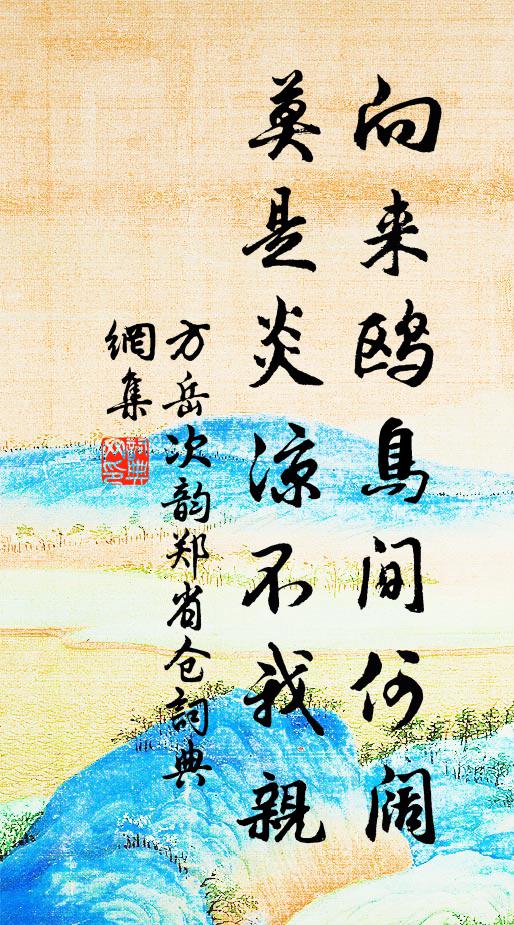 向来鸥鳥间何阔
莫是炎涼不我親
方岳次韵郑省仓詞典
網集